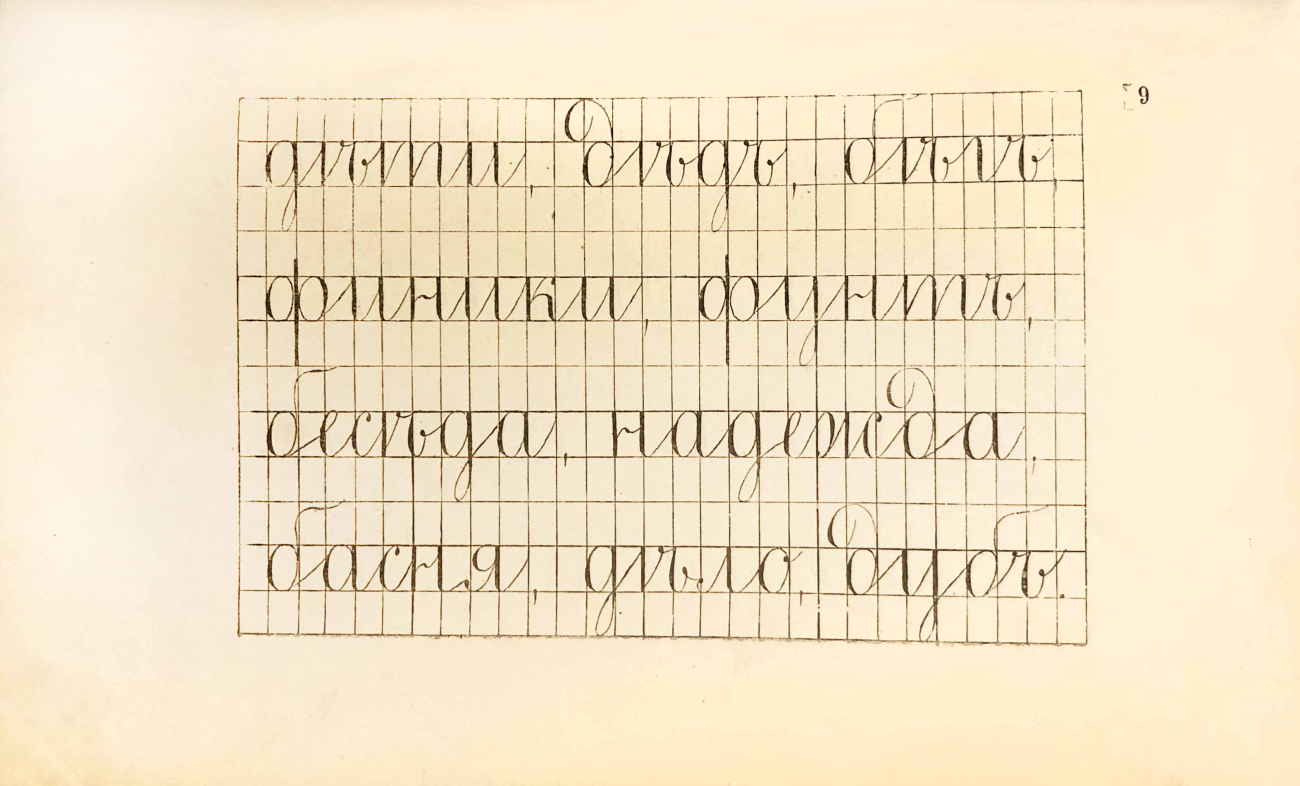 9
дѣти, дѣдъ, бѣгъ,
финики, фунтъ,
бесѣда, надежда,
басня, дѣло, дубъ.